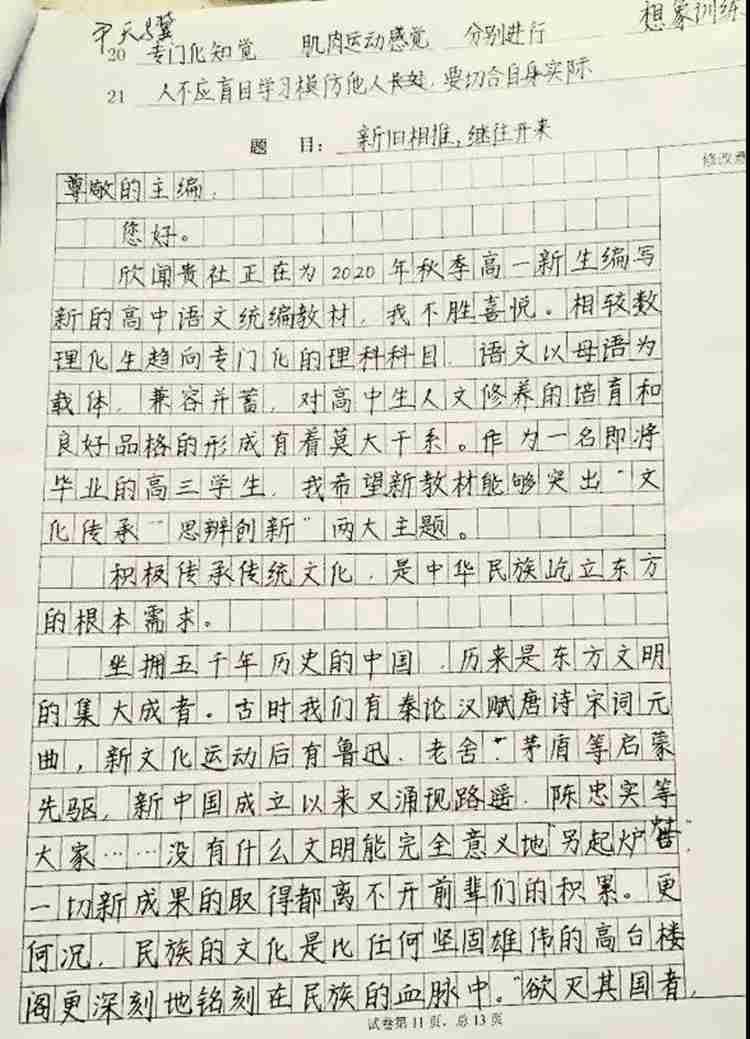 尹天翼
想象训练
20 专门化知觉 肌肉运动感觉 分别进行
21 人不应盲目学习模仿他人长处,要切合自身实际
题 目: 新旧相推,继往开来
修改意
尊敬的主编:
您好。
欣闻贵社正在为2020年秋季高一新生编写
新的高中语文统编教材,我不胜喜悦。相较数
理化生趋向专门化的理科科目,语文以母语为
载体,兼容并蓄,对高中生人文修养的培育和
良好品格的形成有着莫大干系。作为一名即将
毕业的高三学生,我希望新教材能够突出“文
化传承”“思辨创新”两大主题。
积极传承传统文化,是中华民族屹立东方
的根本需求。
坐拥五千年历史的中国,历来是东方文明
的集大成者。古时我们有秦论汉赋唐诗宋词元
曲,新文化运动后有鲁迅、老舍、茅盾等启蒙
先驱,新中国成立以来又涌现路遥、陈忠实等
大家……没有什么文明能完全意义地“另起炉灶”,
一切新成果的取得都离不开前辈们的积累。更
何况,民族的文化是比任何坚固雄伟的高台楼
阁更深刻地铭刻在民族的血脉中。“欲灭其国者,
试卷第11页,总13页